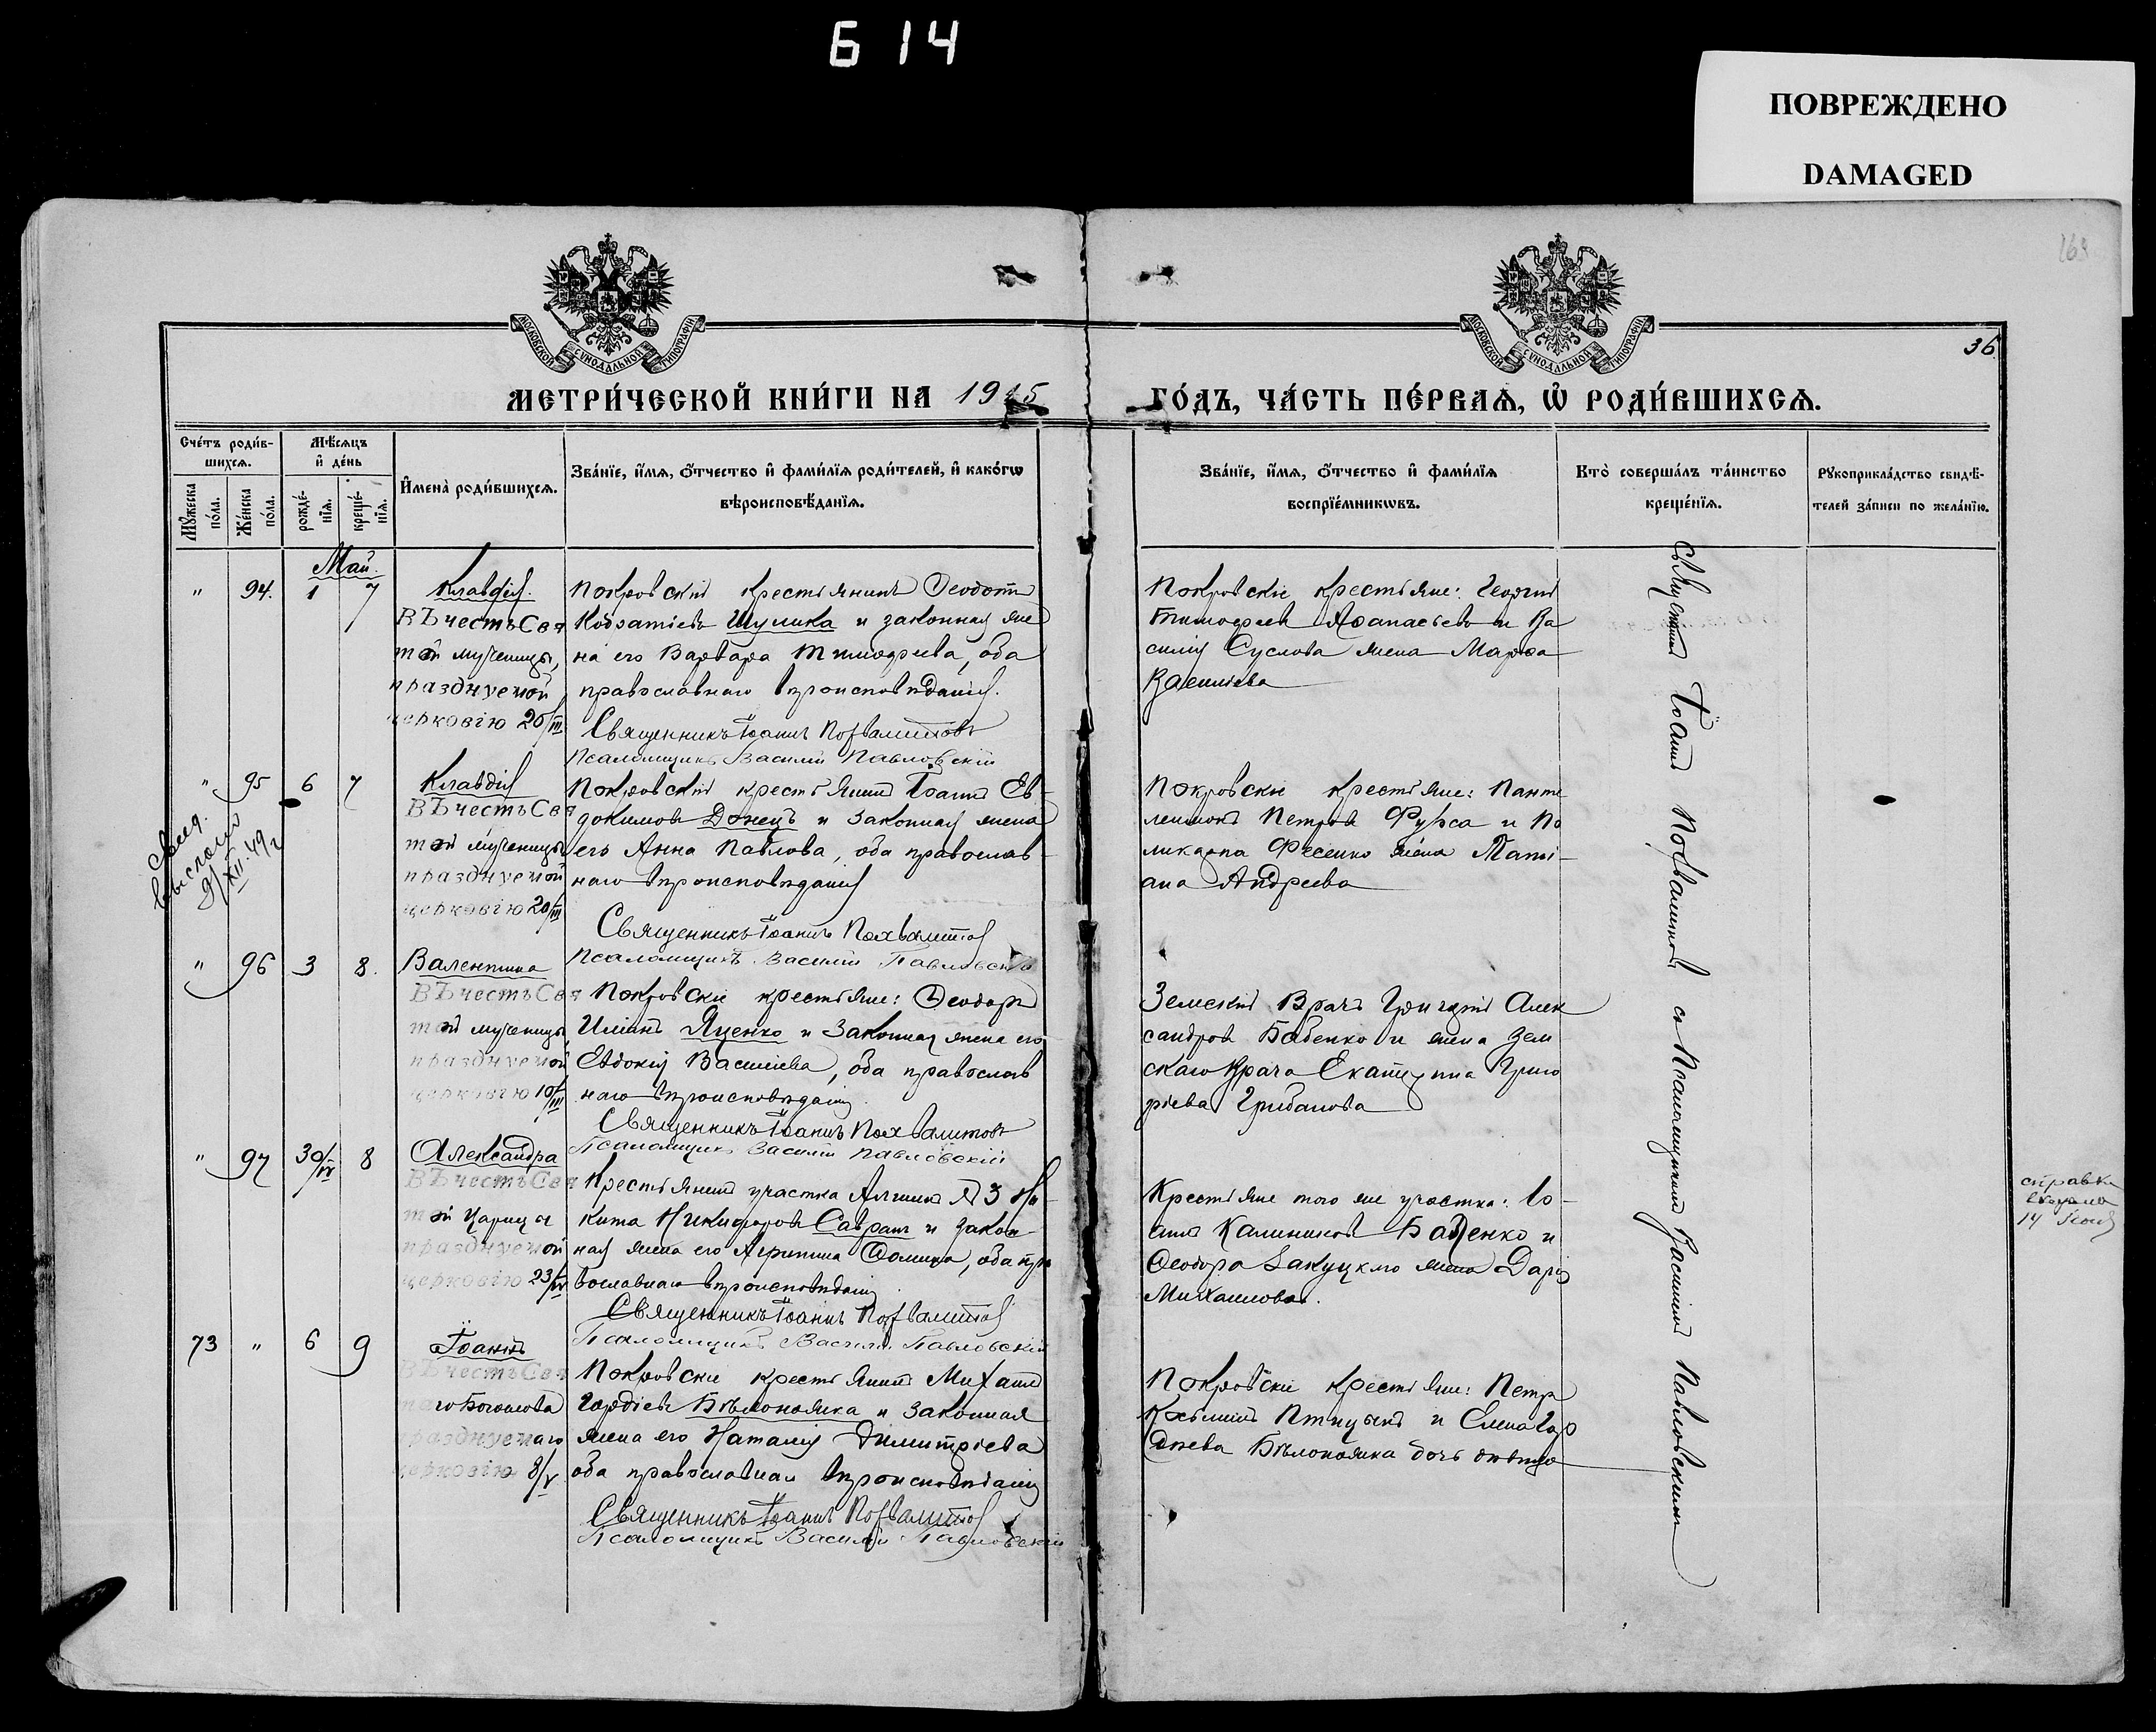 614
ПОВРЕЖДЕНО
DAMAGED
169
МОСКОВСКОЙ СѴНОДАЛЬНОЙ ТИПОГРАФІИ
МОСКОВСКОЙ СѴНОДАЛЬНОЙ ТИПОГРАФІИ
36
МЕТРИ́ЧЕСКОЙ КНИ́ГИ НА 1915
ГО́ДЪ, ЧА́СТЬ ПЕ́РВАѦ, Ѡ РОДИ́ВШИХСѦ.
Сче́тъ роди́в-
шихсѧ.
Мѣ́сѧцъ
и҆ де́нь
Мꙋ́жеска по́ла.
Же́нска по́ла.
рожде́-нїѧ.
креще́-нїѧ.
И҆мена̀ роди́вшихсѧ.
Зва́нїе, и҆́мѧ, ѻ҆́тчество и҆ фами́лїѧ роди́телей, и҆ како́гѡ
вѣроисповѣ́данїѧ.
Зва́нїе, и҆́мѧ, ѻ҆́тчество и҆ фами́лїѧ
воспрїе́мникѡвъ.
Кто̀ соверша́лъ та́инство
креще́нїѧ.
Рꙋкоприкла́дство свидѣ́-
телей за́писи по жела́нїю.
Май.
" 94. 1 7 Клавдія.
ВЪ честь Свя
той мученицы,
празднуемой
церковію 20/III
Покровскій крестьянинъ Ѳеодотъ
Кодратіевъ Шулика и законная же
на его Варвара Тимофеева, оба
православнаго вѣроисповѣданія.
Священникъ Іоаннъ Похвалитовъ
Псаломщикъ Василій Павловскій
Покровскіе крестьяне: Георгій
Тимофеевъ Аѳанасьевъ и Ва
силія Суслова жена Марѳа
Васильева
" 95 6 7 Клавдія
ВЪ честь Свя
той мученицы
празднуемой
церковію 20/III
Покровскій крестьянинъ Іоаннъ Ев-
докимовъ Донецъ и законная жена
его Анна Павлова, оба православ-
наго вѣроисповѣданія
Священникъ Іоаннъ Похвалитовъ
Псаломщикъ Василій Павловскій
Покровскіе крестьяне: Панте
леимонъ Петровъ Фурса и По
ликарпа Фесенко жена Тати-
ана Андреева
Свид.
выслано
9/XII 49 г
" 96 3 8. Валентина
ВЪ честь Свя
той мученицы,
празднуемой
церковію 10/III
Покровскіе крестьяне: Ѳеодоръ
Иліинъ Яценко и законная жена его
Евдокія Васильева, оба православ
наго вѣроисповѣданія
Священникъ Іоаннъ Похвалитовъ
Псаломщикъ Василій Павловскій
Земскій Врачъ Григорій Алек
сандровъ Бабенко и жена Зем
скаго Врача Екатерина Григо
ріева Грибанова
" 97 30/IV 8 Александра
ВЪ честь Свя
той Царицы
празднуемой
церковію 23/IV
Крестьянинъ участка № 3 Ни
кита Никифоровъ Савранъ и закон
ная жена его Агрипина Ѳомина, оба пра
вославнаго вѣроисповѣданія
Священникъ Іоаннъ Похвалитовъ
Псаломщикъ Василій Павловскій
Крестьяне того же участка: Іо-
аннъ Калиниковъ и
Ѳеодора жена Дарія
Михаилова.
справка
14
73 " 6 9 Іоаннъ
ВЪ честь Свя
таго Богослова
празднуемаго
церковію 8/V
Покровскіе крестьянинъ Михаилъ
Гордіевъ Бѣлоножка и законная
жена его Наталія Димитріева
оба православнаго вѣроисповѣданія
Священникъ Іоаннъ Похвалитовъ
Псаломщикъ Василій Павловскій
Покровскіе крестьяне: Петръ
Козьминъ Птицынъ и Елена Гор
діева Бѣлоножка дочь
Священникъ Іоаннъ Похвалитовъ съ Псаломщикомъ Василіемъ Павловскимъ